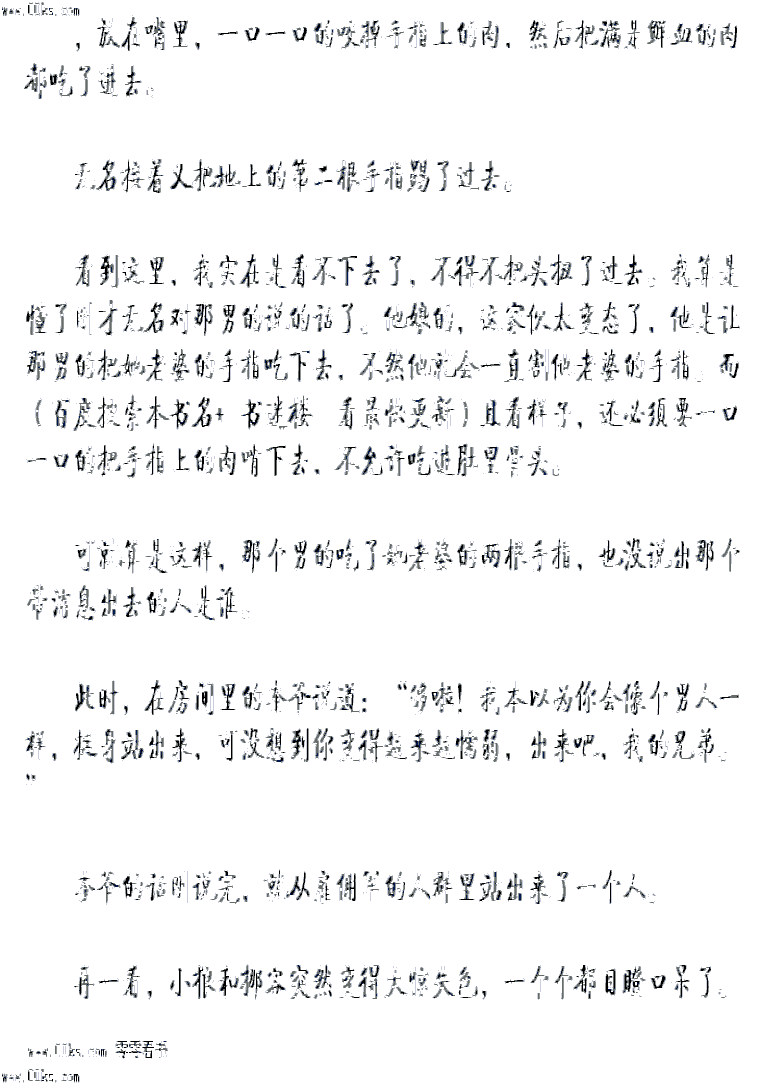 www.00ks.com
，放在嘴里，一口一口的咬掉手指上的肉，然后把满是鲜血的肉
都吃了进去。
无名接着又把地上的第二根手指踢了过去。
看到这里，我实在是看不下去了，不得不把头扭了过去。我算是
懂了刚才无名对那男的说的话了。他娘的，这家伙太变态了，他是让
那男的把她老婆的手指吃下去，不然他就会一直割他老婆的手指。而
（百度搜索本书名+ 书迷楼 看最快更新）且看样子，还必须要一口
一口的把手指上的肉啃下去，不允许吃进肚里骨头。
可就算是这样，那个男的吃了她老婆的两根手指，也没说出那个
带消息出去的人是谁。
此时，在房间里的李爷说道：“够啦！我本以为你会像个男人一
样，挺身站出来，可没想到你变得越来越懦弱，出来吧，我的兄弟。
”
李爷的话刚说完，就从雇佣军的人群里站出来了一个人。
再一看，小狼和挪容突然变得大惊失色，一个个都目瞪口呆了。
www.00ks.com 零零看书
www.00ks.com